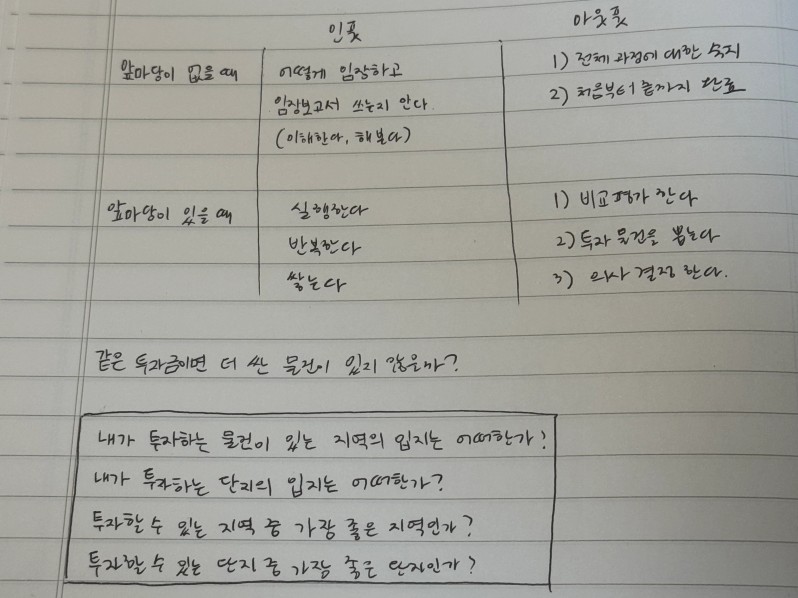 인풋 아웃풋
앞마당이 없을 때 어떻게 임장하고 1) 전체 과정에 대한 숙지
임장보고서 쓰는지 안다. 2) 처음부터 끝까지 완료
(이해한다, 해본다)
앞마당이 있을 때 실행한다 1) 비교평가 한다
반복한다 2) 투자 물건을 뽑는다
쌓는다 3) 의사결정 한다.
같은 투자금이면 더 싼 물건이 있지 않은가?
내가 투자하는 물건이 있는 지역의 입지는 어떠한가?
내가 투자하는 단지의 입지는 어떠한가?
투자할 수 있는 지역 중 가장 좋은 지역인가?
투자할 수 있는 단지 중 가장 좋은 단지인가?